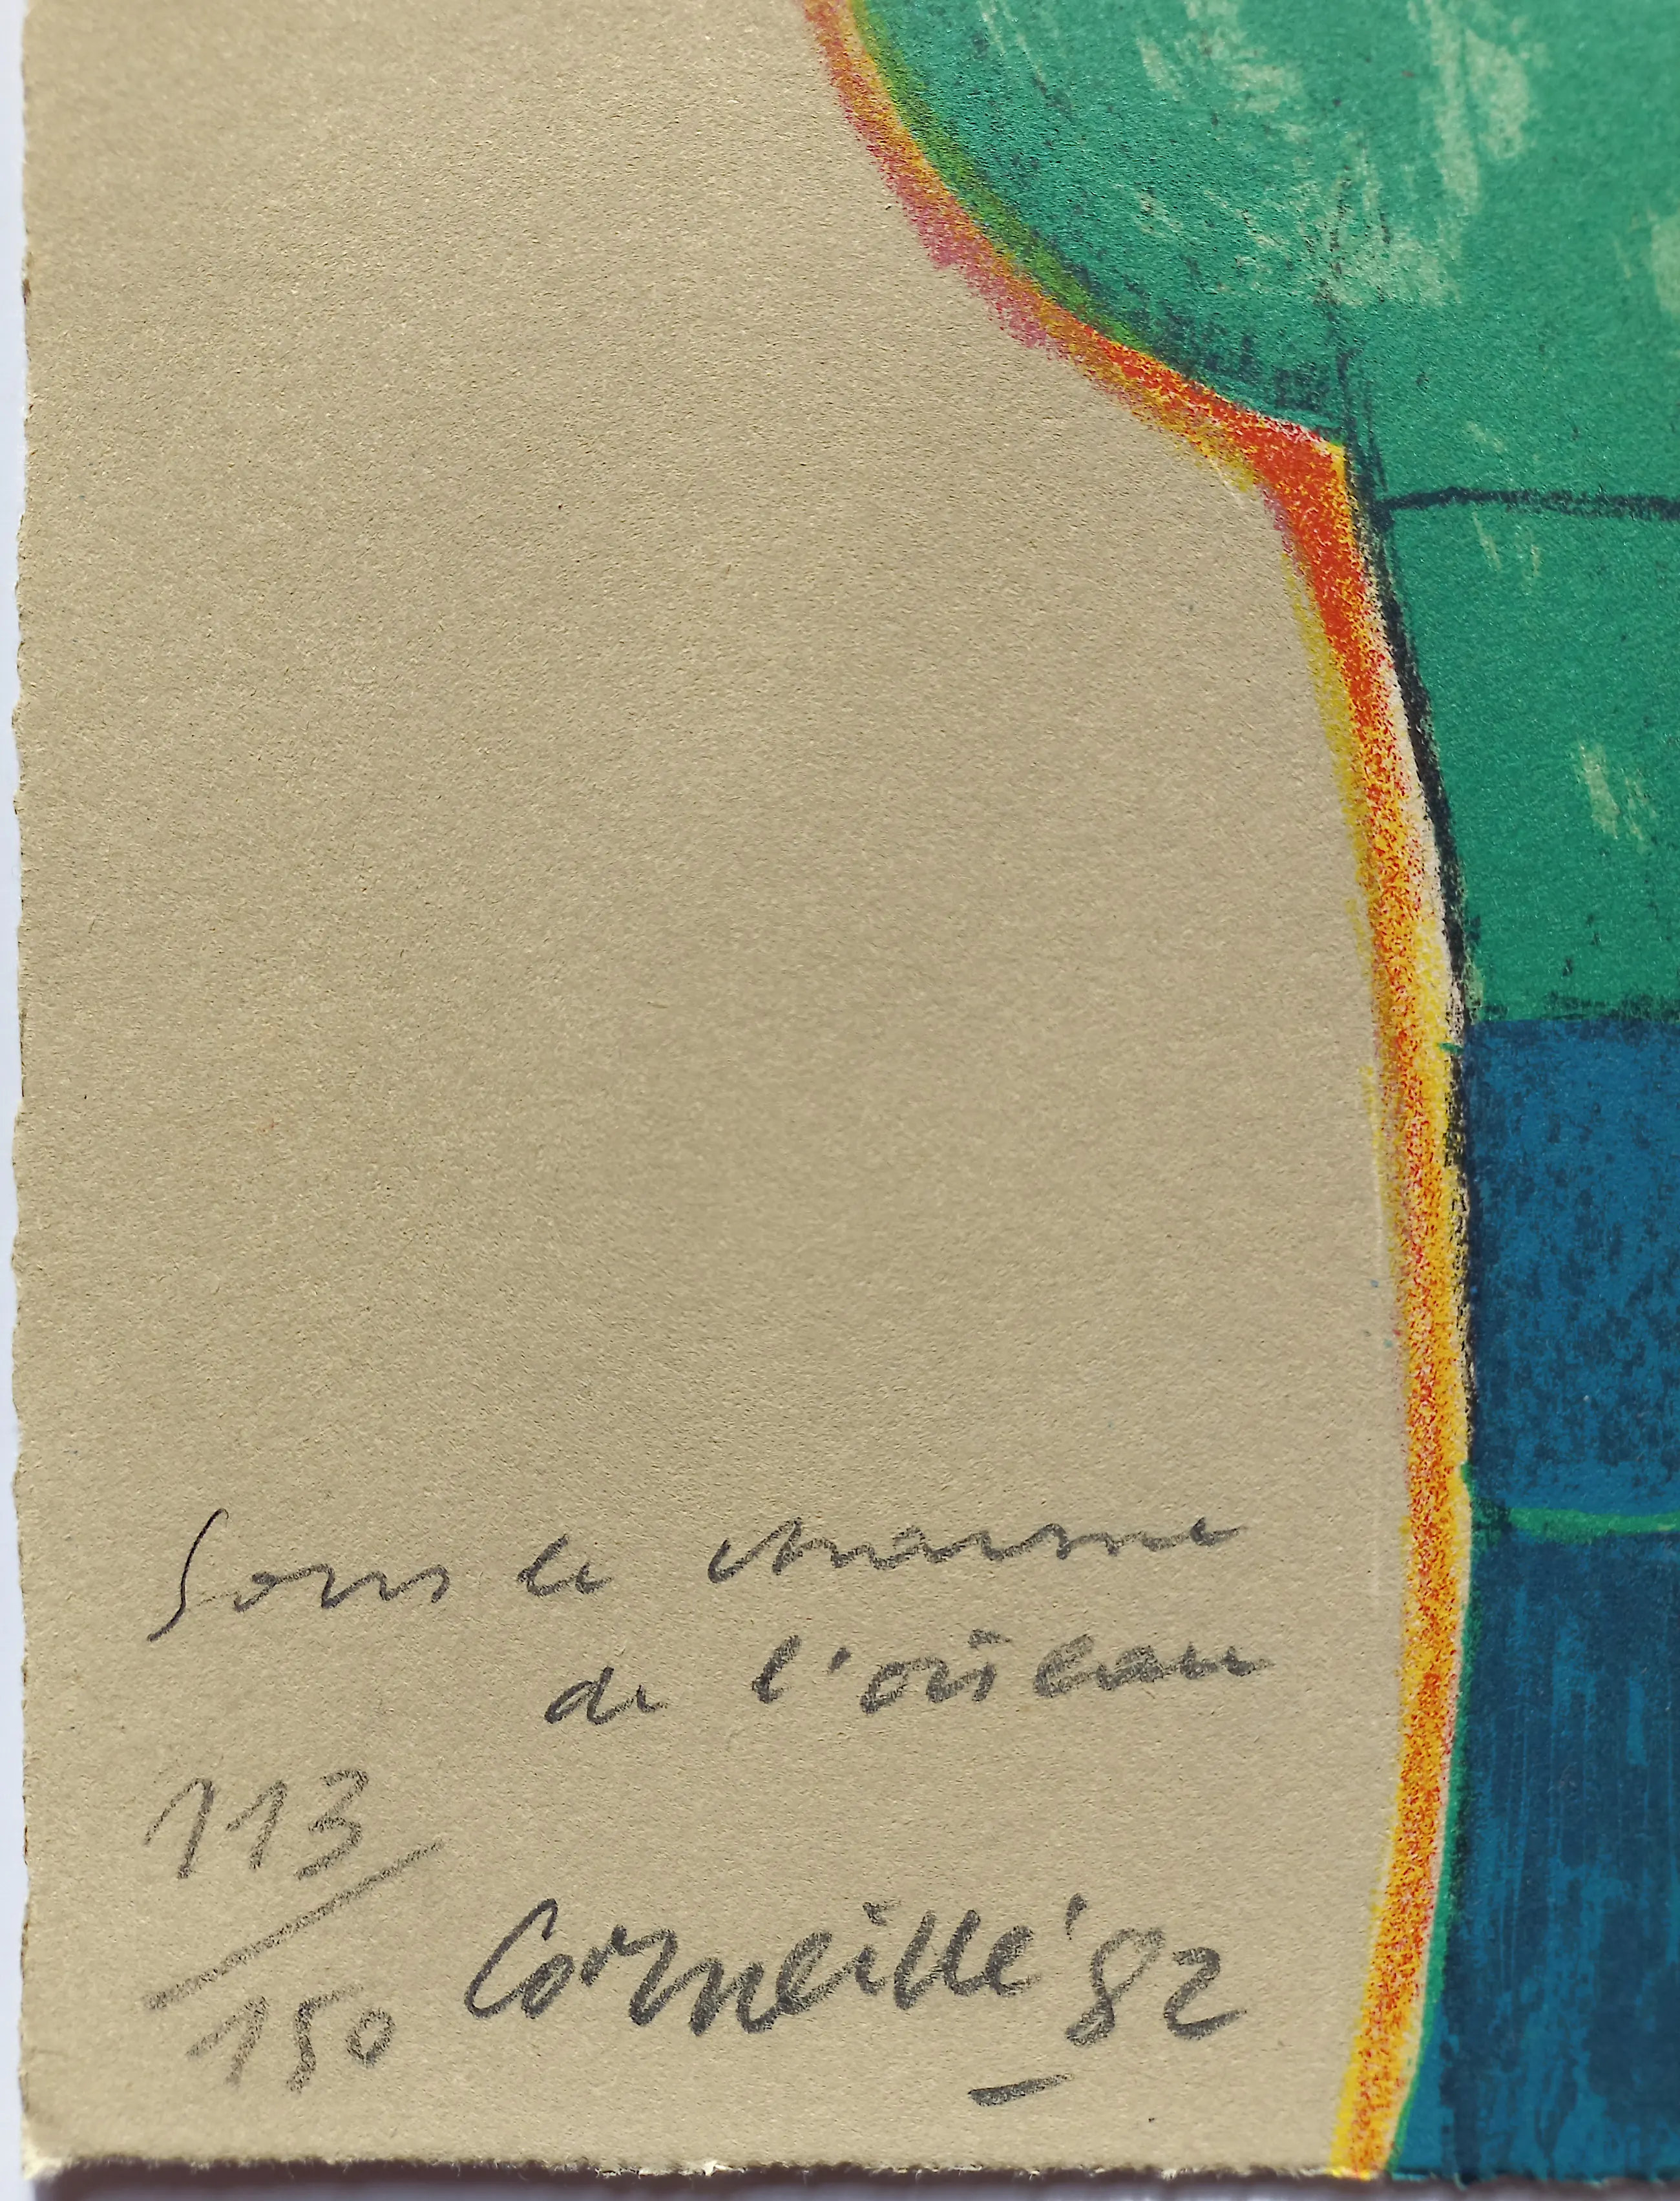 Sous le charme
de l'oiseau
113/150
Corneille '82